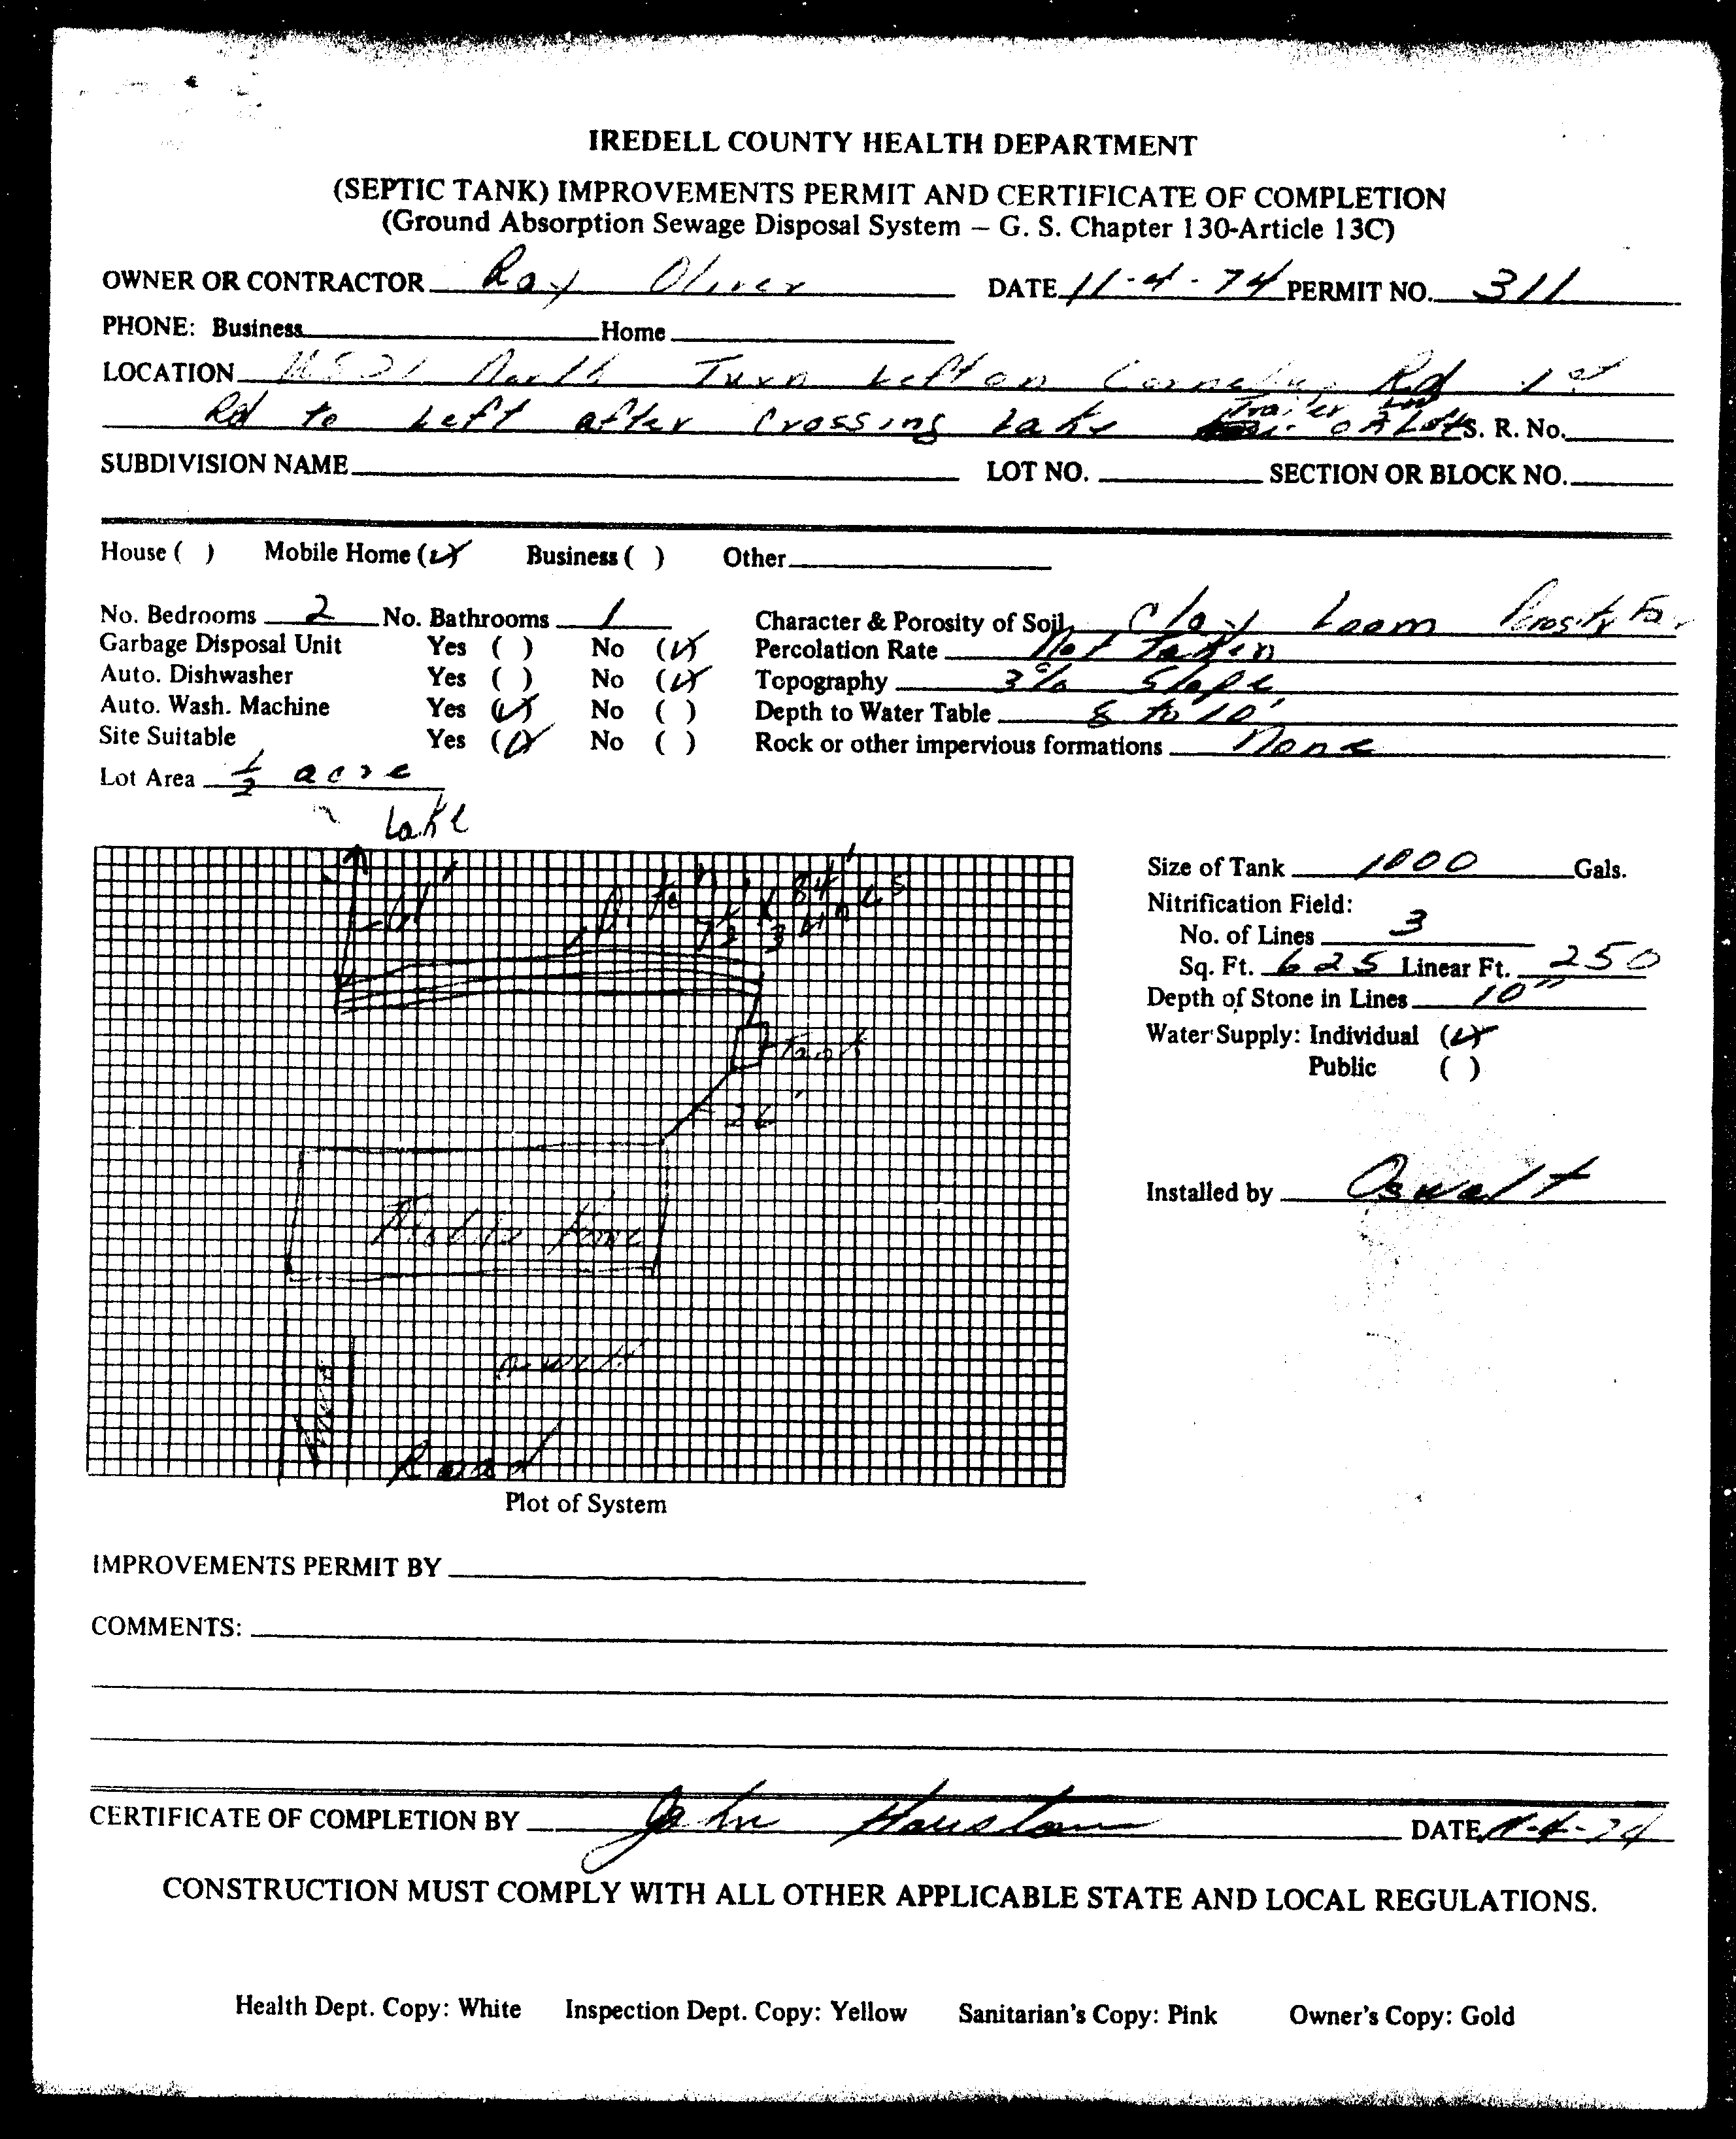 IREDELL COUNTY HEALTH DEPARTMENT
(SEPTIC TANK) IMPROVEMENTS PERMIT AND CERTIFICATE OF COMPLETION
(Ground Absorption Sewage Disposal System – G. S. Chapter 130-Article 13C)
OWNER OR CONTRACTOR Ray Oliver DATE 11-4-74 PERMIT NO. 311
PHONE: Business Home
LOCATION US 21 North Turn Left on Cornelius Rd 1st
Rd to Left after Crossing Lake Trailer on Lot S. R. No.
SUBDIVISION NAME LOT NO. SECTION OR BLOCK NO.
House ( ) Mobile Home (✓) Business ( ) Other
No. Bedrooms 2 No. Bathrooms 1 Character & Porosity of Soil Clay Loam Porosity Fair
Garbage Disposal Unit Yes ( ) No (✓) Percolation Rate Not Taken
Auto. Dishwasher Yes ( ) No (✓) Topography 3% Slope
Auto. Wash. Machine Yes (✓) No ( ) Depth to Water Table 8 to 10'
Site Suitable Yes (✓) No ( ) Rock or other impervious formations None
Lot Area 1/2 acre
Lake
Size of Tank 1000 Gals.
Nitrification Field:
No. of Lines 3
Sq. Ft. 625 Linear Ft. 250
Depth of Stone in Lines 10"
Water Supply: Individual (✓)
Public ( )
3 Lines
84'
Tank
26'
Mobile Home
Installed by Oswalt
Road
Plot of System
IMPROVEMENTS PERMIT BY
COMMENTS:
CERTIFICATE OF COMPLETION BY John Houston DATE 11-4-74
CONSTRUCTION MUST COMPLY WITH ALL OTHER APPLICABLE STATE AND LOCAL REGULATIONS.
Health Dept. Copy: White Inspection Dept. Copy: Yellow Sanitarian's Copy: Pink Owner's Copy: Gold